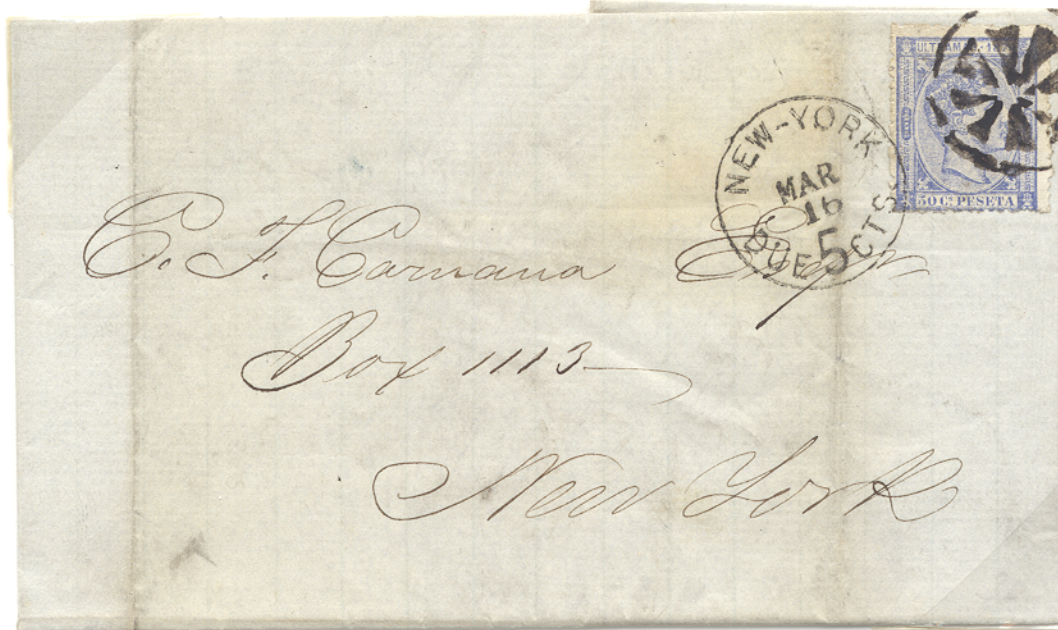 ULTRAMAR 18
50 C. PESETA
NEW-YORK
MAR
16
DUE 5 CTS
C. F. Carnana Esqr
Box 1113
New York